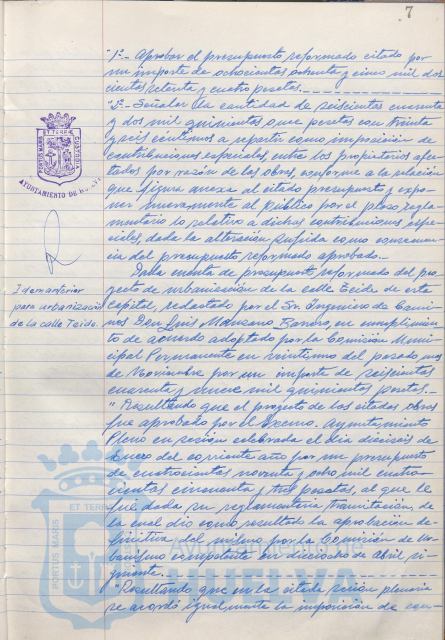 7
"1º.- Aprobar el presupuesto reformado citado por
un importe de ochocientas ochenta y cinco mil dos
cientas setenta y cuatro pesetas.
"2º.- Señalar la cantidad de seiscientas cincuenta
y dos mil quinientas once pesetas con treinta
y seis céntimos a repartir como imposición de
contribuciones especiales, entre los propietarios afec-
tados por razón de las obras, conforme a la relación
que figura anexa al citado presupuesto y expo-
ner nuevamente al público por el plazo regla-
mentario lo relativo a dichas contribuciones espe-
ciales, dada la alteración sufrida como consecuen-
cia del presupuesto reformado aprobado.
PORTUS MARIS ET TERRAE CUSTODIA
AYUNTAMIENTO DE HUELVA
Idem anterior
para urbanización
de la calle Teide.
Dada cuenta de presupuesto reformado del pro-
yecto de urbanización de la calle Teide de esta
capital, redactado por el Sr. Ingeniero de Cami-
nos Don Luis Manzano, en cumplimien-
to de acuerdo adoptado por la Comisión Muni-
cipal Permanente en veintiuno del pasado mes
de Noviembre por un importe de seiscientas
cuarenta y nueve mil quinientas pesetas.
"Resultando que el proyecto de las citadas obras
fue aprobado por el Excmo. Ayuntamiento
Pleno en sesión celebrada el día dieciseis de
Enero del corriente año por un presupuesto
de cuatrocientas noventa y ocho mil cuatro-
cientas cincuenta y tres pesetas, al que le
fué dada su reglamentaria tramitación, de
la cual dio como resultado la aprobación de-
finitiva del mismo por la Comisión de Ur-
banismo competente en dieciocho de Abril si-
guiente.
"Resultando que en la citada sesión plenaria
se acordó igualmente la imposición de con-
PORTUS MARIS ET TERRAE
Ayuntamiento de
HUELVA